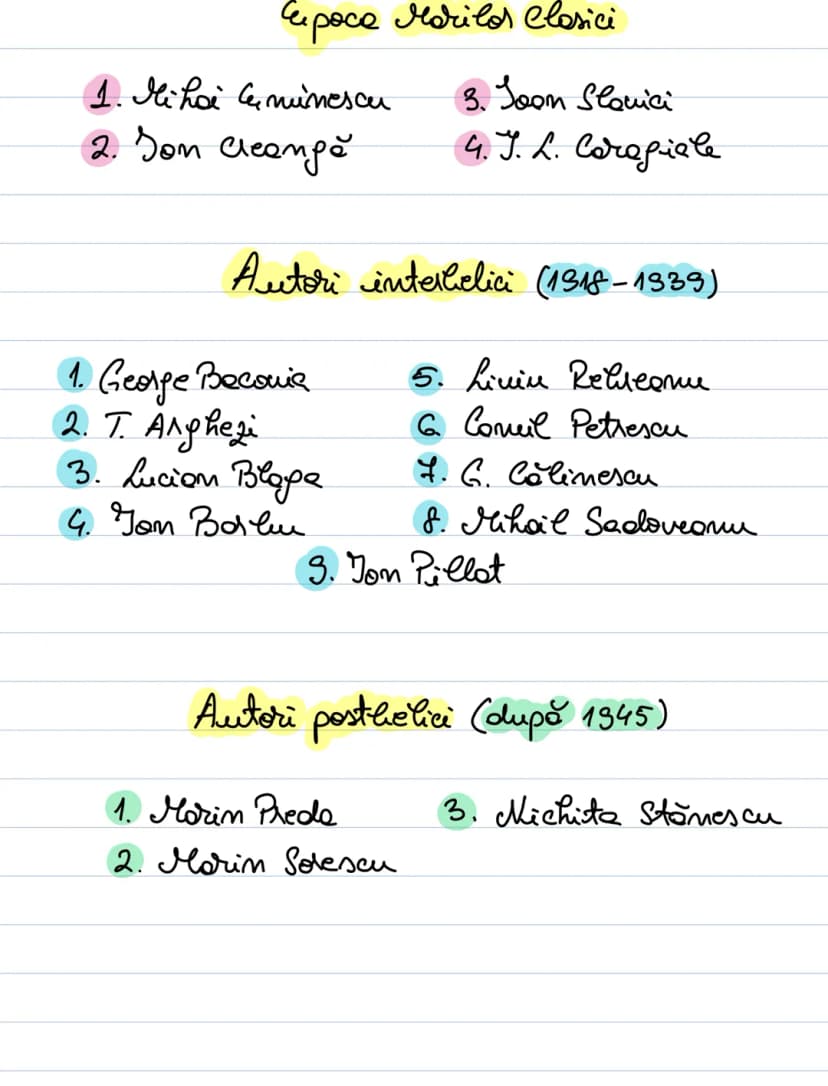 Epoca Marilor Clasici
1. Mihai Eminescu
2. Ion Creangă
3. Ioan Slavici
4. I. L. Caragiale
Autori interbelici (1918-1939)
1. George Bacovia
2. T. Arghezi
3. Lucian Blaga
4. Ion Barbu
5. Liviu Rebreanu
6 Camil Petrescu
7. G. Călinescu
8. Mihail Sadoveanu
9. Ion Pillat
Autori postbelici (după 1945)
1. Marin Preda
2. Marin Sorescu
3. Nichita Stănescu